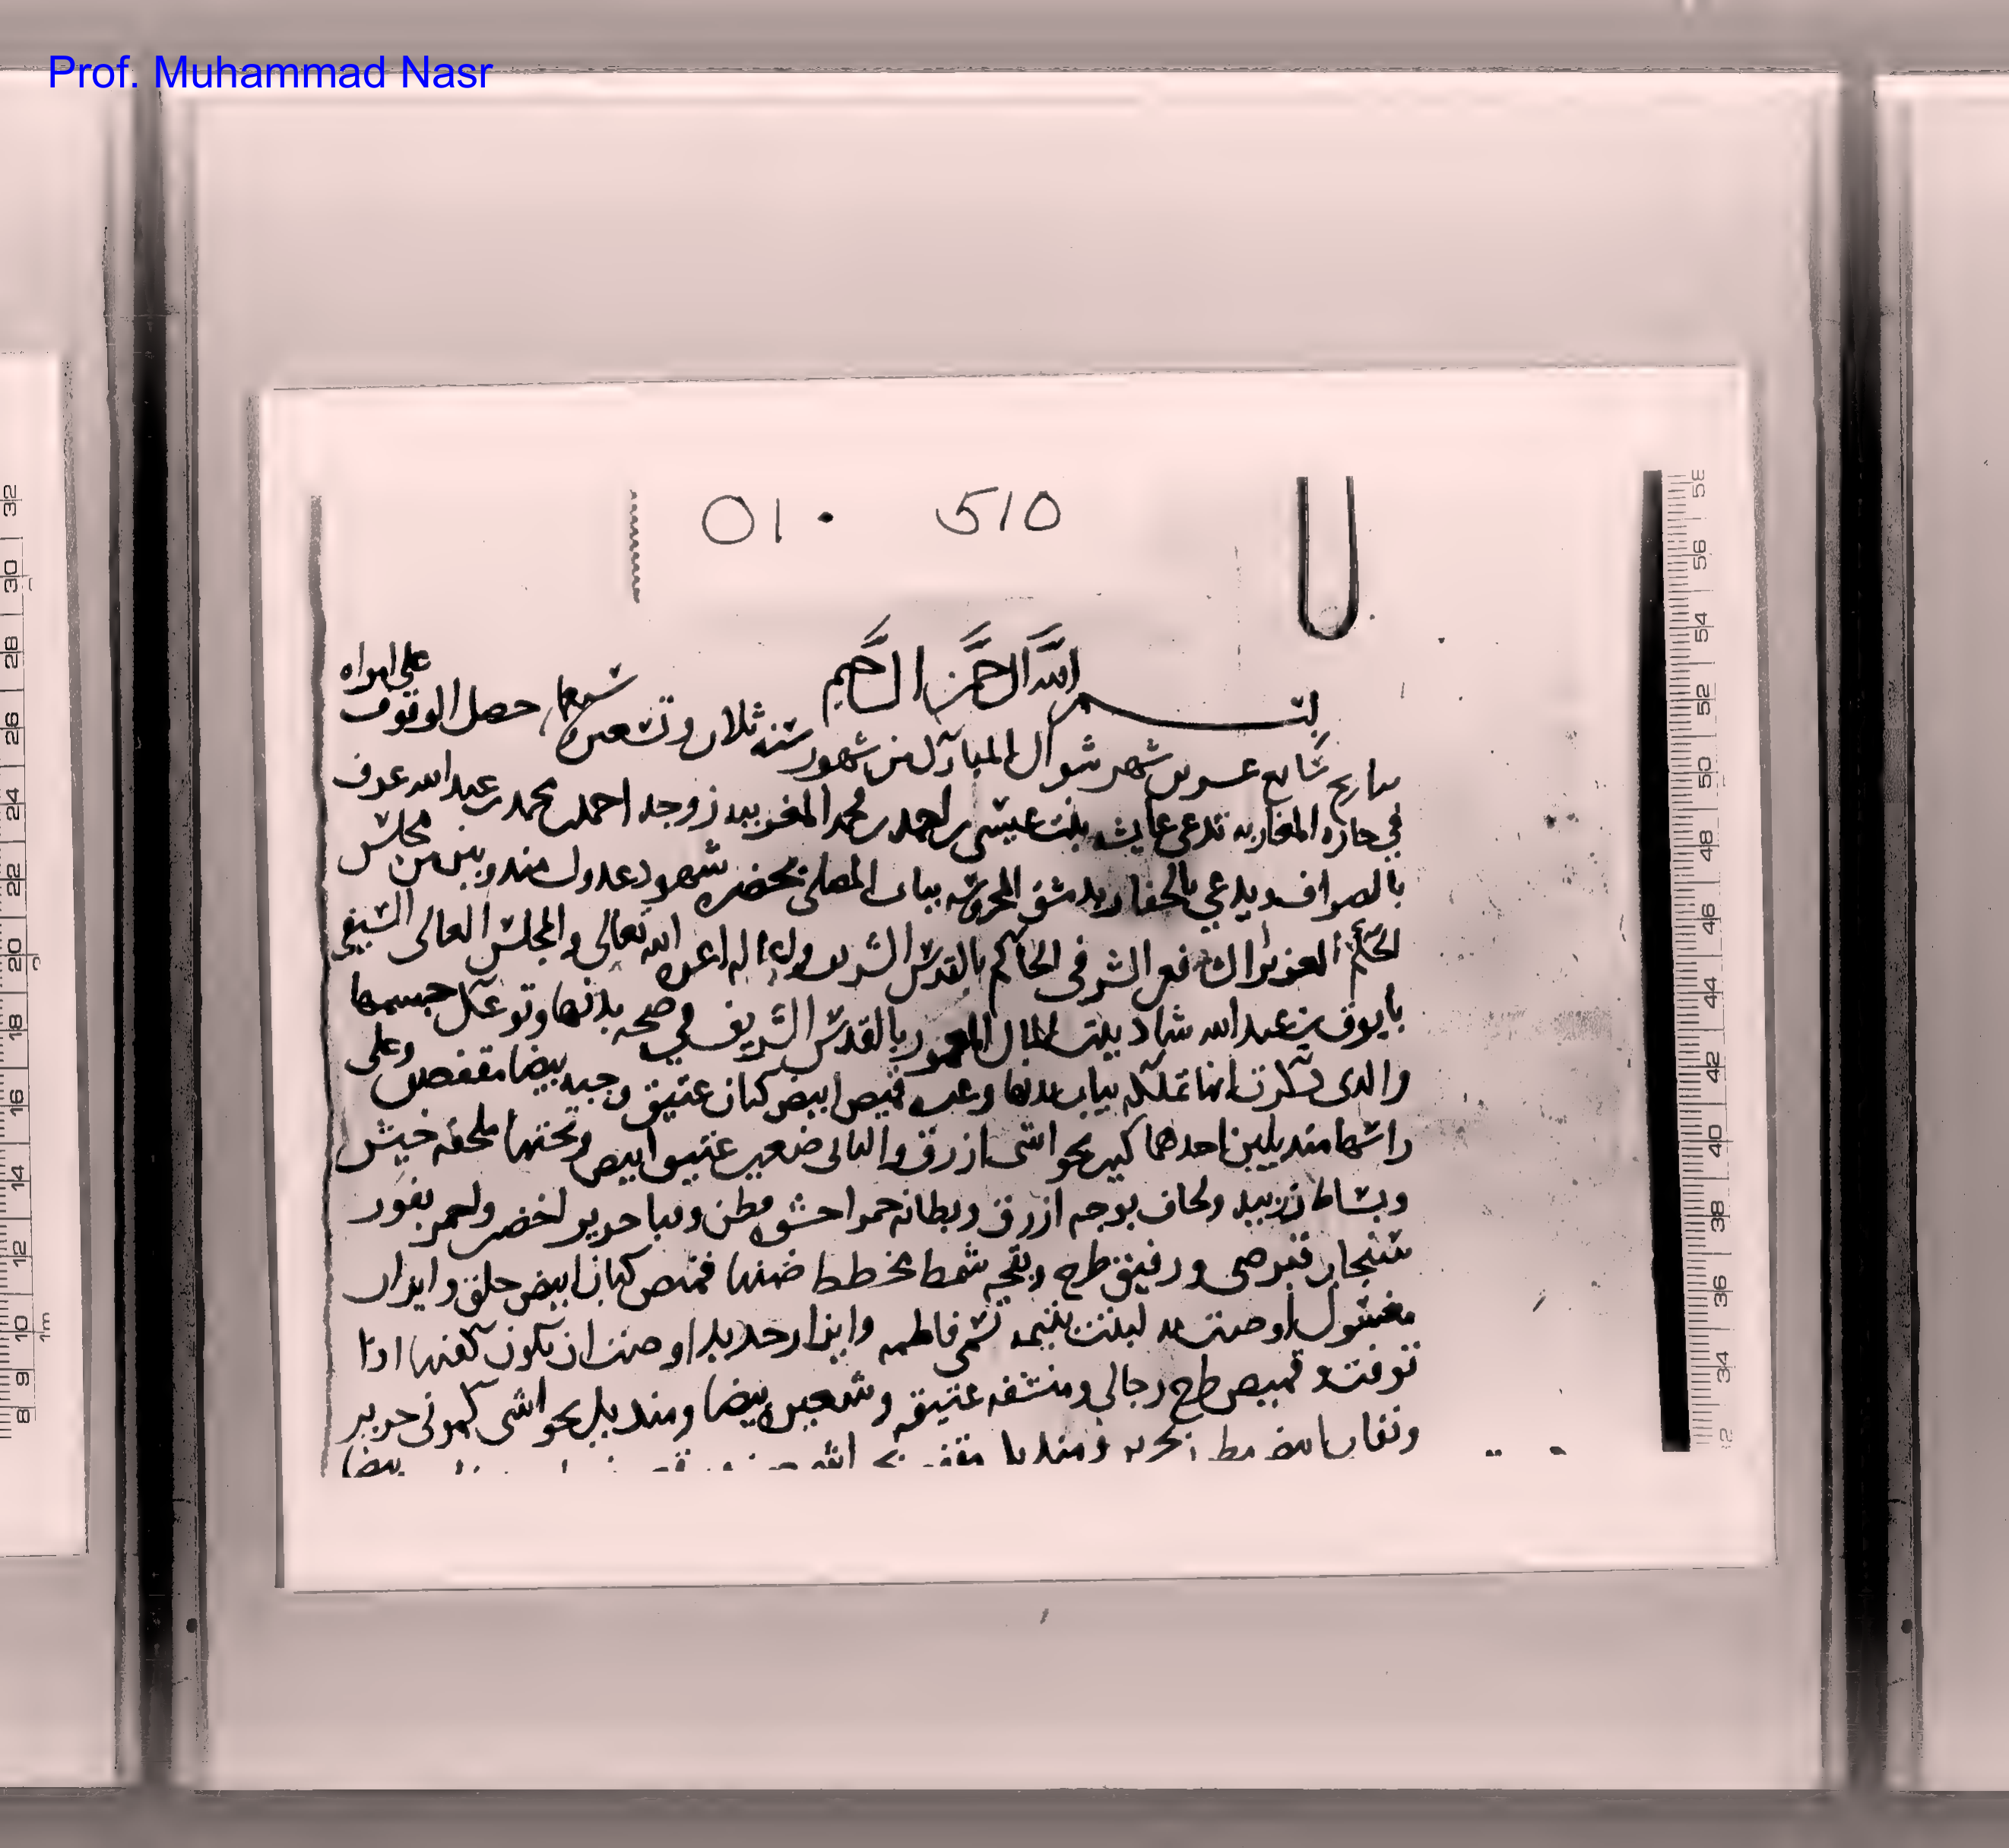 Prof. Muhammad Nasr
٥١٠ 510
بسم الله الرحمن الرحيم
بتاريخ سابع عشرين شهر شوال المبارك من شهور سنة ثلاث وتسعين وسبعمايه حصل الوقوف على امراه
في حاره المغاربه تدعى عايشه بنت عيسى بن احمد بن محمد المغربيه زوجه احمد بن محمد بن عبد الله عرف
بالصراف ويدعي بالحفار بدمشق المحروسه بباب المصلى بحضره شهود عدول مندوبين من مجلس
الحكم العزيز الشافعي الشرفي الحاكم بالقدس الشريف اعزه الله تعالى والمجلس العالى السيفي
بن عبد الله شاد بيت المال المعمور بالقدس الشريف في صحه بدنها وتوعك جسمها
والدى ذكرت انها تملكه ثياب بدنها وهي قميص ابيض كتان عتيق وجبه بيضا وعلى
راسها منديلين احدهما كبير بحواشى ازرق والثانى صغير عتيق ابيض وتحتها ملحفه خيش
وبساط ولحاف بوجه ازرق وبطانه حمرا حشوه قطن وقبا حرير اخضر واحمر
سنجاب قبرصي طرح وبقجه شمط مخطط ضمنها قميص كتان ابيض خلق وايزار
مغسول اوصت به لبنت يتيمه تسمى فاطمه وايزار جديد اوصت ان يكون كفنها اذا
توفت وقميص طرح رجالي ومنشفه عتيقه بيضا ومنديل بحواشى كمونى حرير